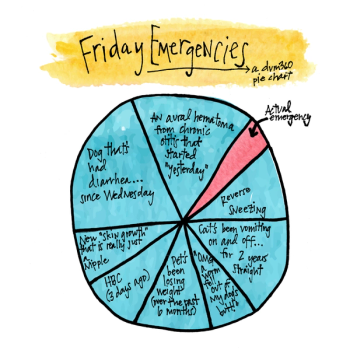 Friday Emergencies
a dvm360
pie chart
Actual
emergency
An aural hematoma
from chronic
otitis that
started
"yesterday"
Dog that's
had
diarrhea...
since Wednesday
Reverse
sneezing
New "skin growth"
that is really just
a
nipple
Cat's been vomiting
on and off...
for 2 years
straight
HBC
(3 days ago)
Pet's
been
losing
weight
(over the past
6 months)
"OMG
worm
fell
out of
my dog's
butt!"